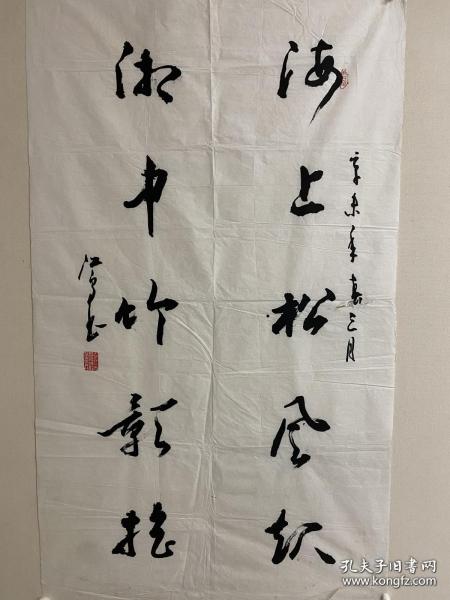 海上松风起
辛未年春三月
湘中竹影摇
孔夫子旧书网
www.kongfz.com